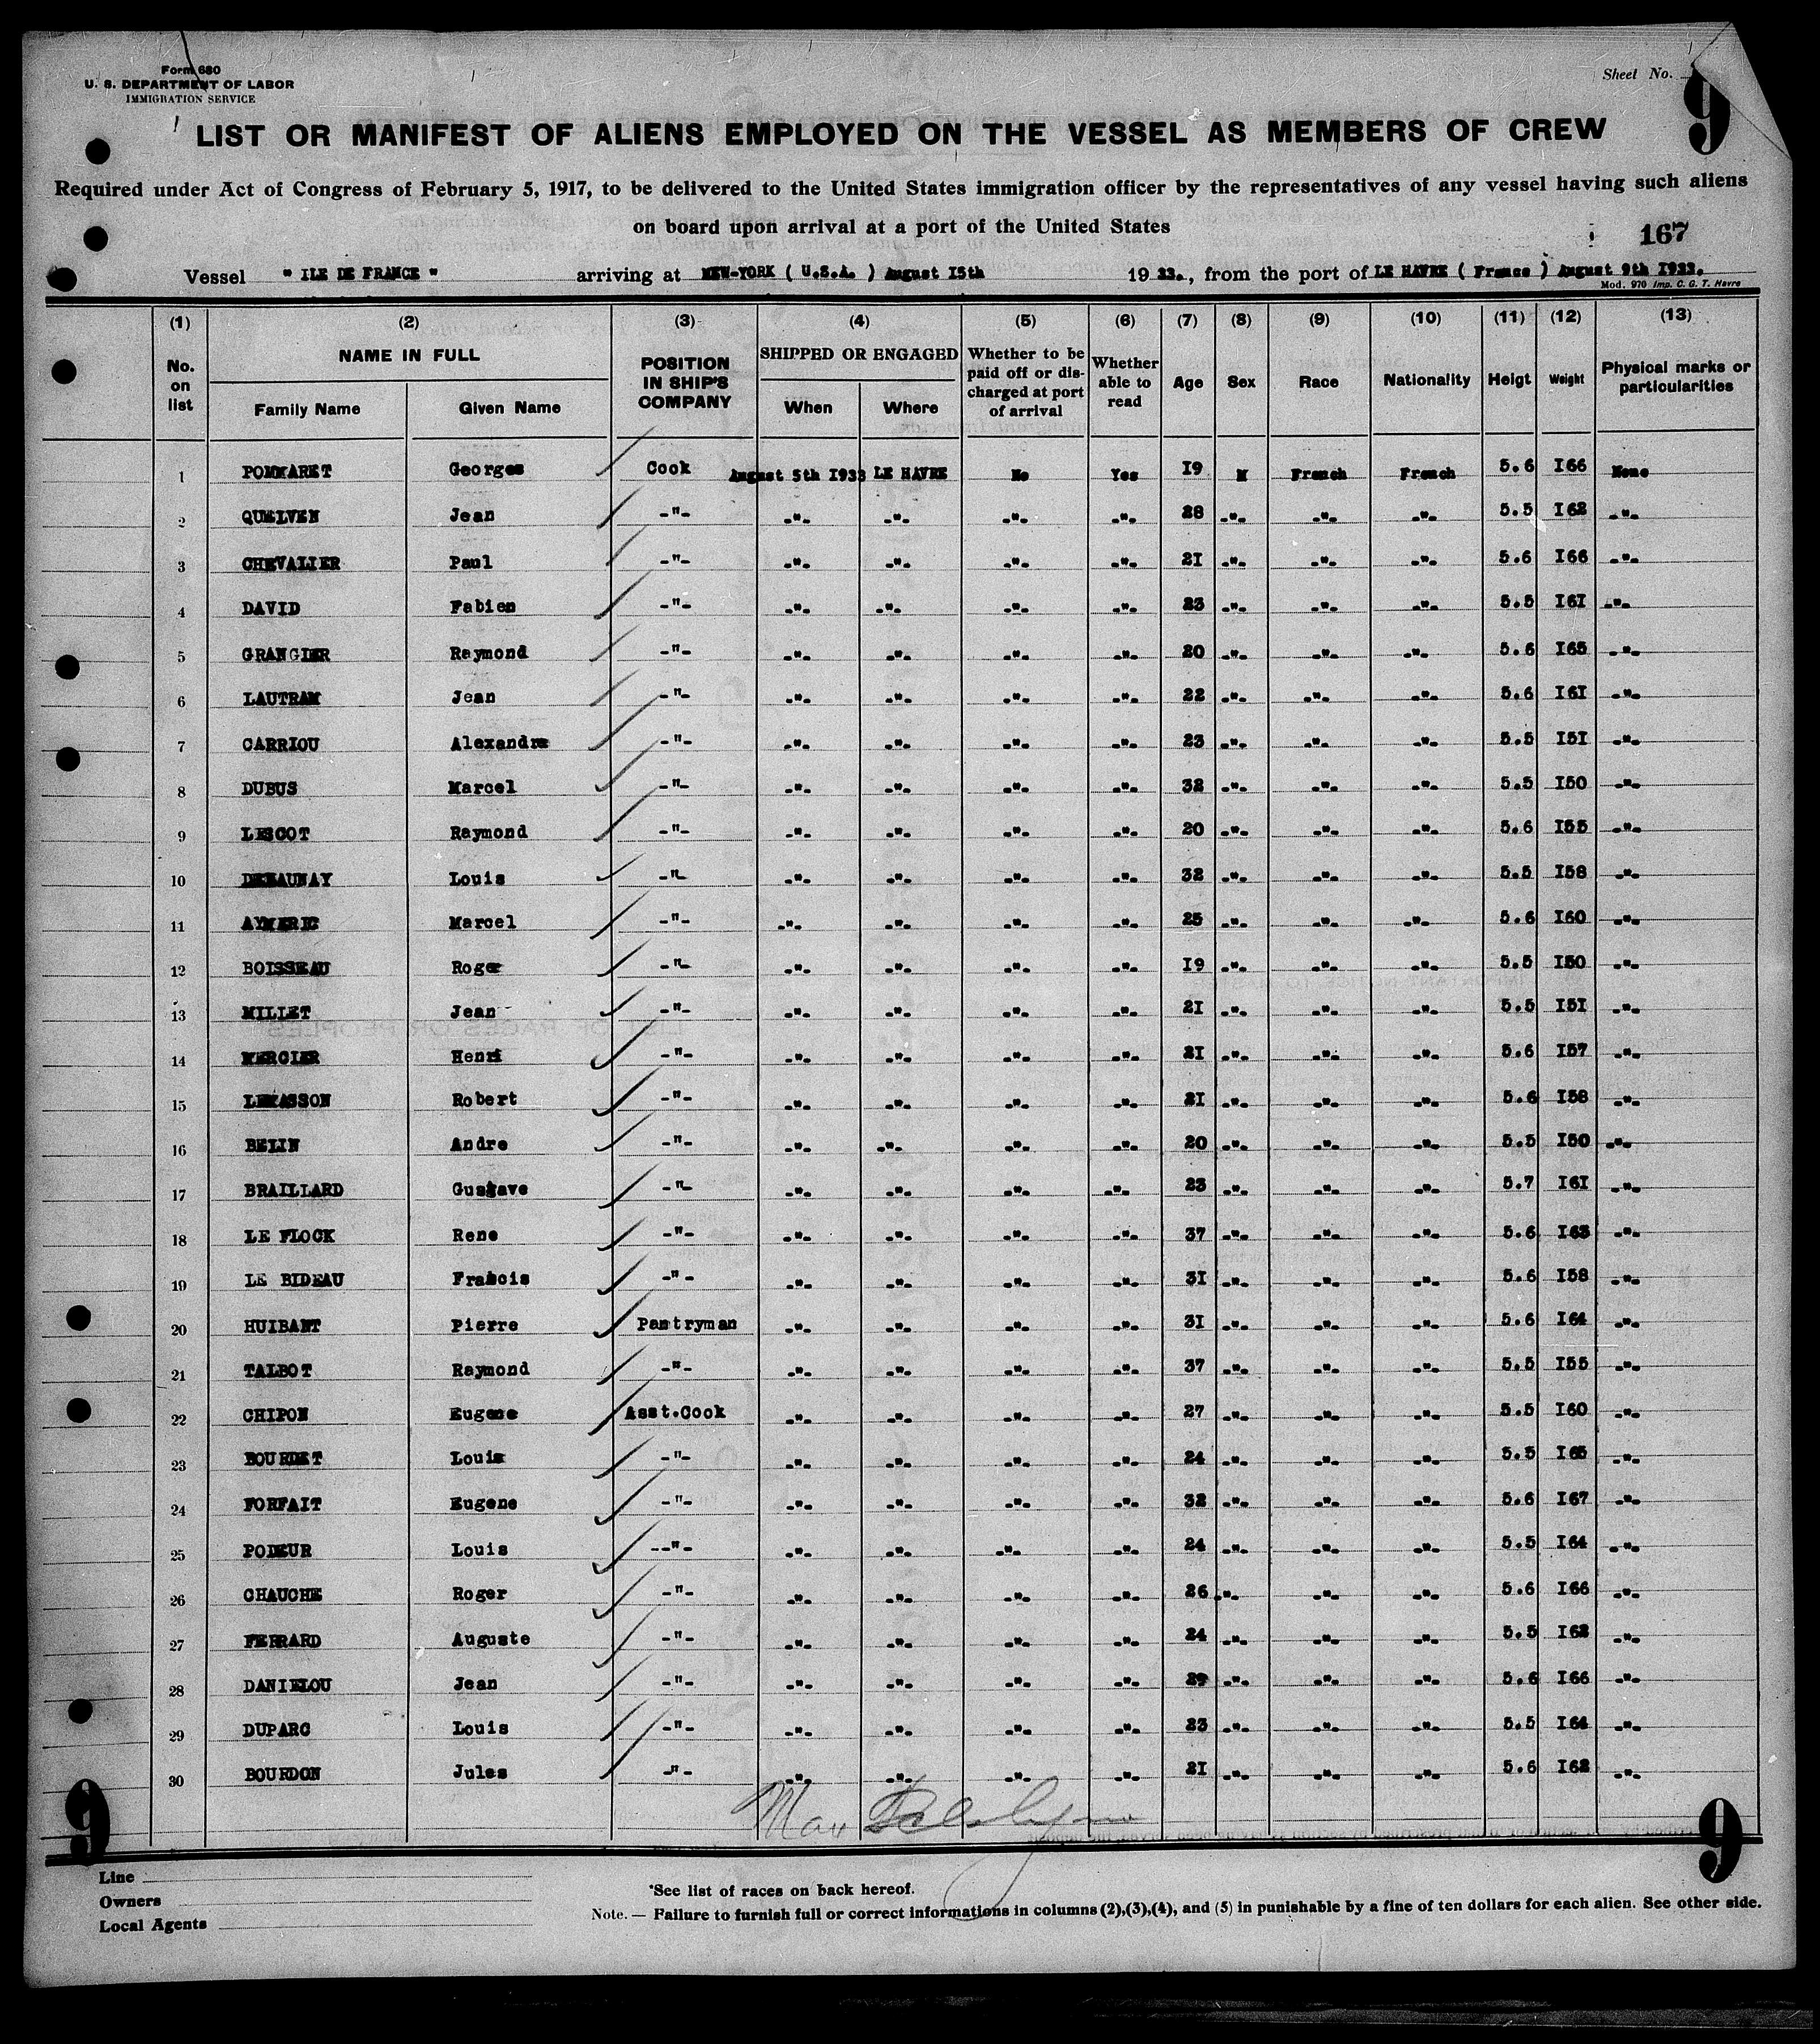 Form 680
U. S. DEPARTMENT OF LABOR
IMMIGRATION SERVICE
Sheet No.
9
LIST OR MANIFEST OF ALIENS EMPLOYED ON THE VESSEL AS MEMBERS OF CREW
Required under Act of Congress of February 5, 1917, to be delivered to the United States immigration officer by the representatives of any vessel having such aliens
on board upon arrival at a port of the United States
167
Vessel " ILE DE FRANCE " arriving at NEW-YORK ( U.S.A. ) August I5th 19 33., from the port of LE HAVRE ( France ) August 9th I933.
Mod. 970 Imp. C. G. T. Havre
(1) (2) (3) (4) (5) (6) (7) (8) (9) (10) (11) (12) (13)
No. on list NAME IN FULL Family Name Given Name POSITION IN SHIP'S COMPANY SHIPPED OR ENGAGED When Where Whether to be paid off or discharged at port of arrival Whether able to read Age Sex Race Nationality Heigt Weight Physical marks or particularities
1 POMMARET Georges Cook August 5th I933 LE HAVRE No Yes I9 M French French 5.6 I66 None
2 QUELVEN Jean -"- -"- -"- -"- -"- 28 -"- -"- -"- 5.5 I62 -"-
3 CHEVALIER Paul -"- -"- -"- -"- -"- 2I -"- -"- -"- 5.6 I66 -"-
4 DAVID Fabien -"- -"- -"- -"- -"- 23 -"- -"- -"- 5.5 I6I -"-
5 GRANGIER Raymond -"- -"- -"- -"- -"- 20 -"- -"- -"- 5.6 I65 -"-
6 LAUTRAM Jean -"- -"- -"- -"- -"- 22 -"- -"- -"- 5.6 I6I -"-
7 CARRIOU Alexandre -"- -"- -"- -"- -"- 23 -"- -"- -"- 5.5 I5I -"-
8 DUBUS Marcel -"- -"- -"- -"- -"- 32 -"- -"- -"- 5.5 I50 -"-
9 LESCOT Raymond -"- -"- -"- -"- -"- 20 -"- -"- -"- 5.6 I55 -"-
10 Louis -"- -"- -"- -"- -"- 32 -"- -"- -"- 5.5 I58 -"-
11 AYMERIC Marcel -"- -"- -"- -"- -"- 25 -"- -"- -"- 5.6 I60 -"-
12 BOISSEAU Roger -"- -"- -"- -"- -"- I9 -"- -"- -"- 5.5 I50 -"-
13 MILLET Jean -"- -"- -"- -"- -"- 2I -"- -"- -"- 5.5 I5I -"-
14 MERCIER Henri -"- -"- -"- -"- -"- 2I -"- -"- -"- 5.6 I57 -"-
15 LEMASSON Robert -"- -"- -"- -"- -"- 2I -"- -"- -"- 5.6 I58 -"-
16 BELIN Andre -"- -"- -"- -"- -"- 20 -"- -"- -"- 5.5 I50 -"-
17 BRAILLARD Gustave -"- -"- -"- -"- -"- 23 -"- -"- -"- 5.7 I6I -"-
18 LE FLOCK Rene -"- -"- -"- -"- -"- 37 -"- -"- -"- 5.6 I63 -"-
19 LE BIDEAU Francis -"- -"- -"- -"- -"- 3I -"- -"- -"- 5.6 I58 -"-
20 HUIBANT Pierre Pantryman -"- -"- -"- -"- 3I -"- -"- -"- 5.6 I64 -"-
21 TALBOT Raymond -"- -"- -"- -"- -"- 37 -"- -"- -"- 5.5 I55 -"-
22 CHIPON Eugene Asst.Cook -"- -"- -"- -"- 27 -"- -"- -"- 5.5 I60 -"-
23 BOURDET Louis -"- -"- -"- -"- -"- 24 -"- -"- -"- 5.5 I65 -"-
24 FORFAIT Eugene -"- -"- -"- -"- -"- 32 -"- -"- -"- 5.6 I67 -"-
25 PODEUR Louis --"- -"- -"- -"- -"- 24 -"- -"- -"- 5.5 I64 -"-
26 CHAUCHE Roger -"- -"- -"- -"- -"- 26 -"- -"- -"- 5.6 I66 -"-
27 FERRARD Auguste -"- -"- -"- -"- -"- 24 -"- -"- -"- 5.5 I62 -"-
28 DANIELOU Jean -"- -"- -"- -"- -"- 29 -"- -"- -"- 5.6 I66 -"-
29 DUPARC Louis -"- -"- -"- -"- -"- 23 -"- -"- -"- 5.5 I64 -"-
30 BOURDON Jules -"- -"- -"- -"- -"- 2I -"- -"- -"- 5.6 I62 -"-
Max
9 9
Line
Owners
Local Agents
*See list of races on back hereof.
Note. — Failure to furnish full or correct informations in columns (2),(3),(4), and (5) in punishable by a fine of ten dollars for each alien. See other side.